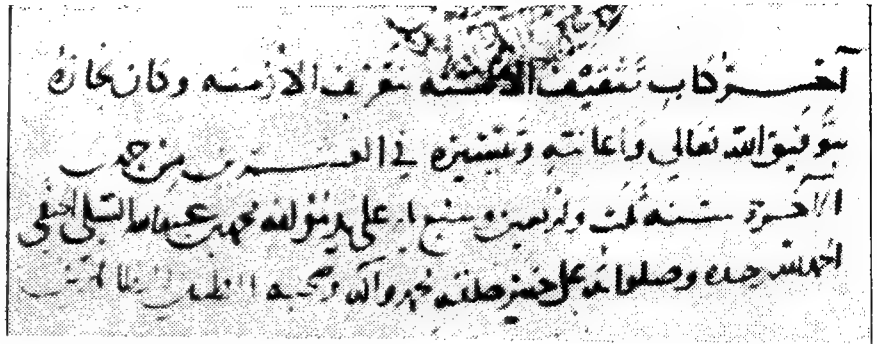 آخر كتاب تثقيف الألسنه بتعريف الأزمنه وكان نجازه
بتوفيق الله تعالى واعانته وتيسيره في العشرين من جمدى
الآخرة سنه ثلث واربعين وسبع على يد مؤلفه محمد بن عبدالله الشبلي الحنفي
الحمد لله وحده وصلواته على خير خلقه محمد وآله وصحبه